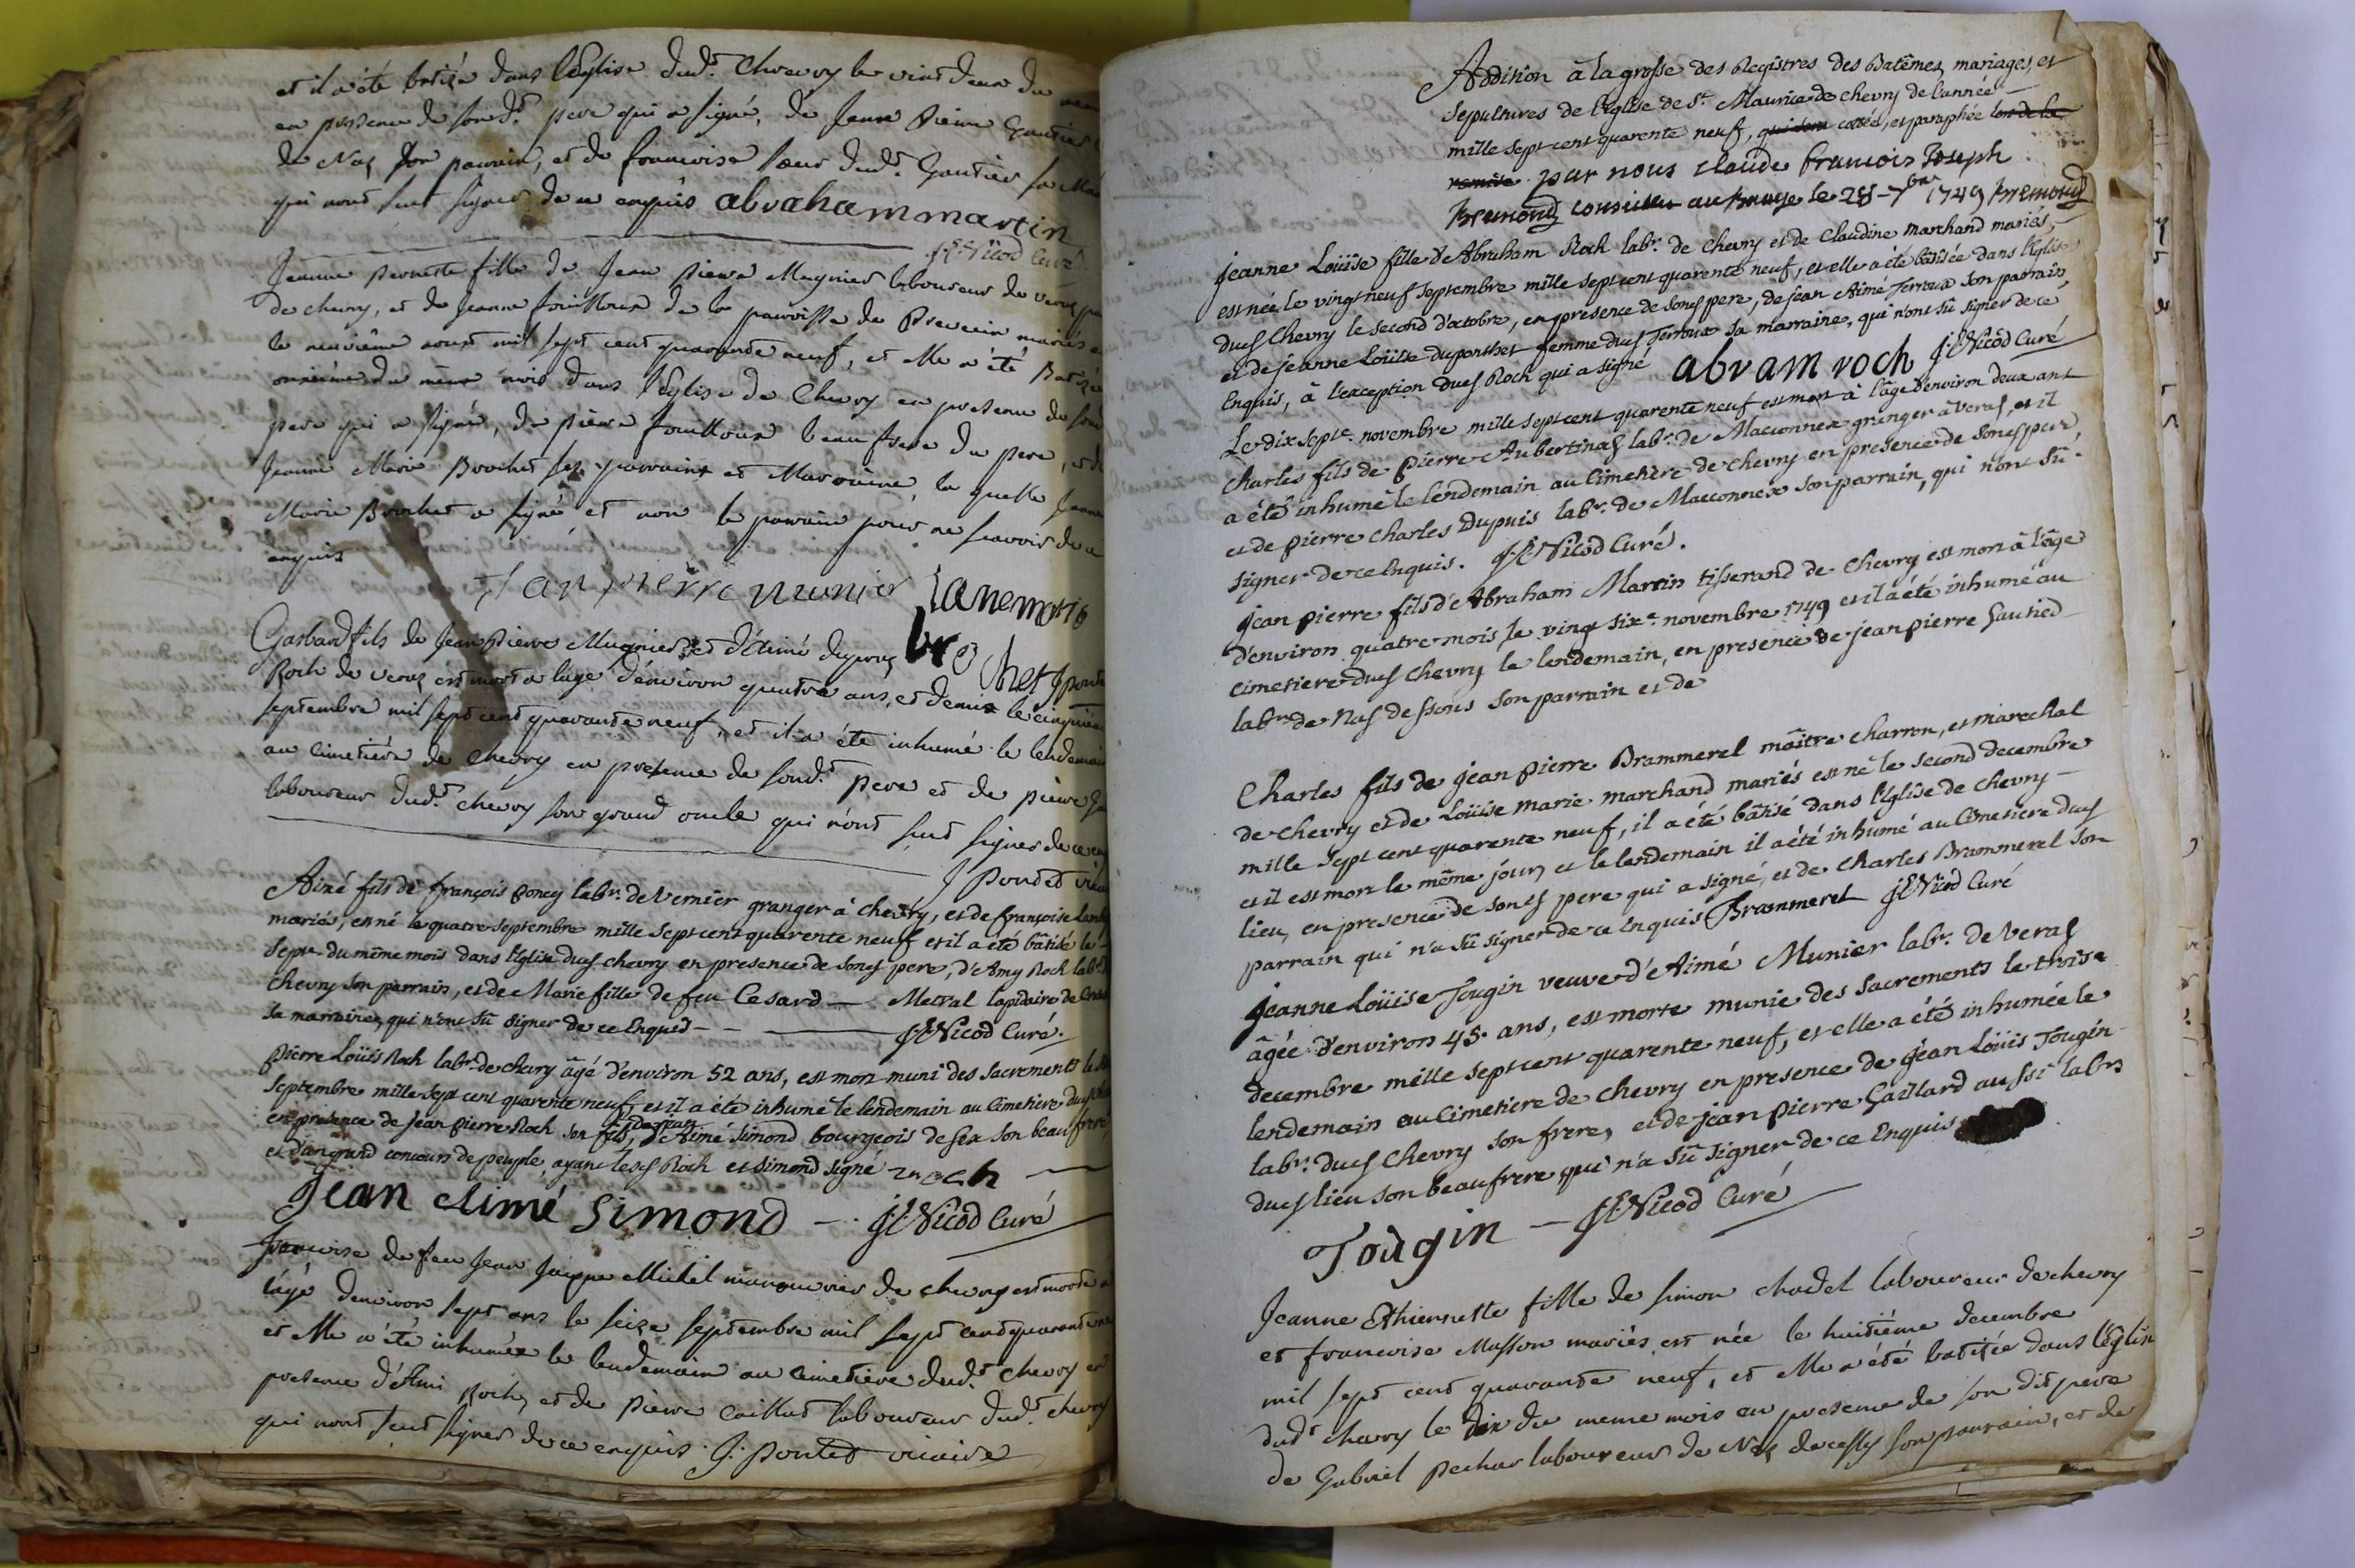 et il a été batizé dans l'Eglise dud.t Chevry le vint deux du
en presence de sond.t pere qui a signé, de Jeane Pierre Gautier
de Nas son parrain, et de francoise soeur dud.t Gautier sa
qui n'ont sçut signer de ce enquis abraham martin
J E Nicod Curé
Jeanne Pernette fille de Jean Pierre Mugnier laboureur de Veraz
de chevry, et de Jeanne fouilloux de la parroisse de Prevecin mariés
le neuvième aoust mil sept cent quarante neuf, et Elle a été Batizée
onzieme du même mois dans l'Eglise de Chevry en presence de son
père qui a signé, de pierre fouilloux beau frere du pere,
Jeanne Marie Brochet ses parrains et Marraine, la quelle Jeanne
Marie Brochet a signé et non le parrain pour ne scavoir de ce
enquis
Jan pierre munier Janemarie
brochet J pontet
Gasbard fils de Jean Pierre Mugnier et d'Aimé
Roch de veraz est mort a l'age d'environ quatre ans, et demix le cinquieme
septembre mil sept cent quarante neuf, et il a été inhumé le lendemain
au cimetière de Chevry en presence de sond.t pere et de pierre
laboureur dud.t chevry son grand oncle qui n'ont sçut signer de ce
J Pontet
Aimé fils de françois Poncy lab.r de Vernier granger à chevry, et de françoise
mariés, est né le quatre septembre mille sept cent quarente neuf et il a été bâtisé le
sept.e du même mois dans l'Eglise dud chevry en presence de sond pere, d'Amy Roch lab.r
Chevry son parrain, et de Marie fille de feu Cesard — Metral lapidaire de
sa marraine, qui n'ont sû signer de ce Enquis — — J E Nicod Curé.
Pierre Loüis Roch lab.r de chevry âgé d'environ 52 ans, est mort muni des sacrements
septembre mille sept cent quarente neuf, et il a été inhumé le lendemain au Cimetiere dud
en presence de jean pierre Roch son fils, d'Aimé Simond bourgeois de Gex son beau frere,
et d'un grand concours de peuple, ayant lesd Roch et Simond signé roch —
Jean Aimé Simond — J E Nicod Curé
francoise de feu Jean Jaique Michel manouvrier de chevry est morte a
l'age d'environ sept ans le seize septembre mil sept cent quarante
et Elle a été inhumée le lendemain au cimetiere dud.t chevry en
presence d'Ami Roch, et de Pierre Caillat laboureur dud.t chevry
qui nont sçut signer de ce enquis. J. pontet vicaire
Addition à la grosse des Registres des Batêmes, mariages, et
sepultures de l'Eglise de S.t Maurice de chevry de l'année
mille sept cent quarente neuf, qui sera cottée, et paraphée lors de la
remise par nous claude francois Joseph
Bremond conseiller au Bailage le 28 7bre 1749 Bremond
Jeanne Loüise fille d'Abraham Roch lab.r de chevry et de Claudine marchand mariés,
est née, le vingt neuf septembre mille sept cent quarente neuf, et elle a été bâtisée dans l'Eglise
dud Chevry le second d'octobre, en presence de sond pere, de jean Aimé Terroux son parrain,
et de jeanne Loüise duponthet femme dud Terroux sa marraine, qui n'ont sû signer de ce
Enquis, à l'exception dud Roch qui a signé abram roch J E Nicod Curé
Le dix sept.e novembre mille sept cent quarente neuf est mort à l'âge d'environ deux ans
Charles fils de pierre Aubertinas lab.r de Maconnex granger à veras, et il
a été inhumé le lendemain au Cimetière de chevry en presence de sond pere,
et de pierre Charles Dupuis lab.r de Maconnex son parrain, qui n'ont sû
signer de ce Enquis. J E Nicod Curé.
Jean pierre fils d'Abraham Martin tisserand de Chevry est mort à l'âge
d'environ quatre mois, le vingt six.e novembre 1749 et il a été inhumé au
Cimetiere dud Chevry le lendemain, en presence de jean pierre Gautied
lab.r de Nas dessous son parrain et de
Charles fils de jean pierre Brammerel maître charron, et marechal
de chevry et de Loüise marie marchand mariés est né le second decembre
mille sept cent quarente neuf, il a été bâtisé dans l'Eglise de chevry —
et il est mort le même jour, et le lendemain il a été inhumé au Cimetiere dud
lieu, en presence de sond pere qui a signé, et de Charles Brammerel son
parrain qui n'a sû signer de ce Enquis Brammerel J E Nicod Curé
Jeanne Loüise Tougin veuve d'Aimé Munier lab.r de Veras
âgée d'environ 45 ans, est morte munie des sacrements le troise
decembre mille sept cent quarente neuf, et elle a été inhumée le
lendemain au Cimetiere de chevry en presence de jean Loüis Tougin
lab.r dud Chevry son frere, et de jean pierre Gaillard aussi lab.r
dud lieu son beau frere qui n'a sû signer de ce Enquis
Tougin — J E Nicod Curé
Jeanne Ethiennette fille de simon chadel laboureur de chevry
et francoise Masson mariés est née le huitième decembre
mil sept cent quarante neuf, et Elle a été batizée dans l'église
dud.t chevry le dix du meme mois en presence de son dit pere
de Gabriel Pechar laboureur de Nas de cessy son parrain, et de